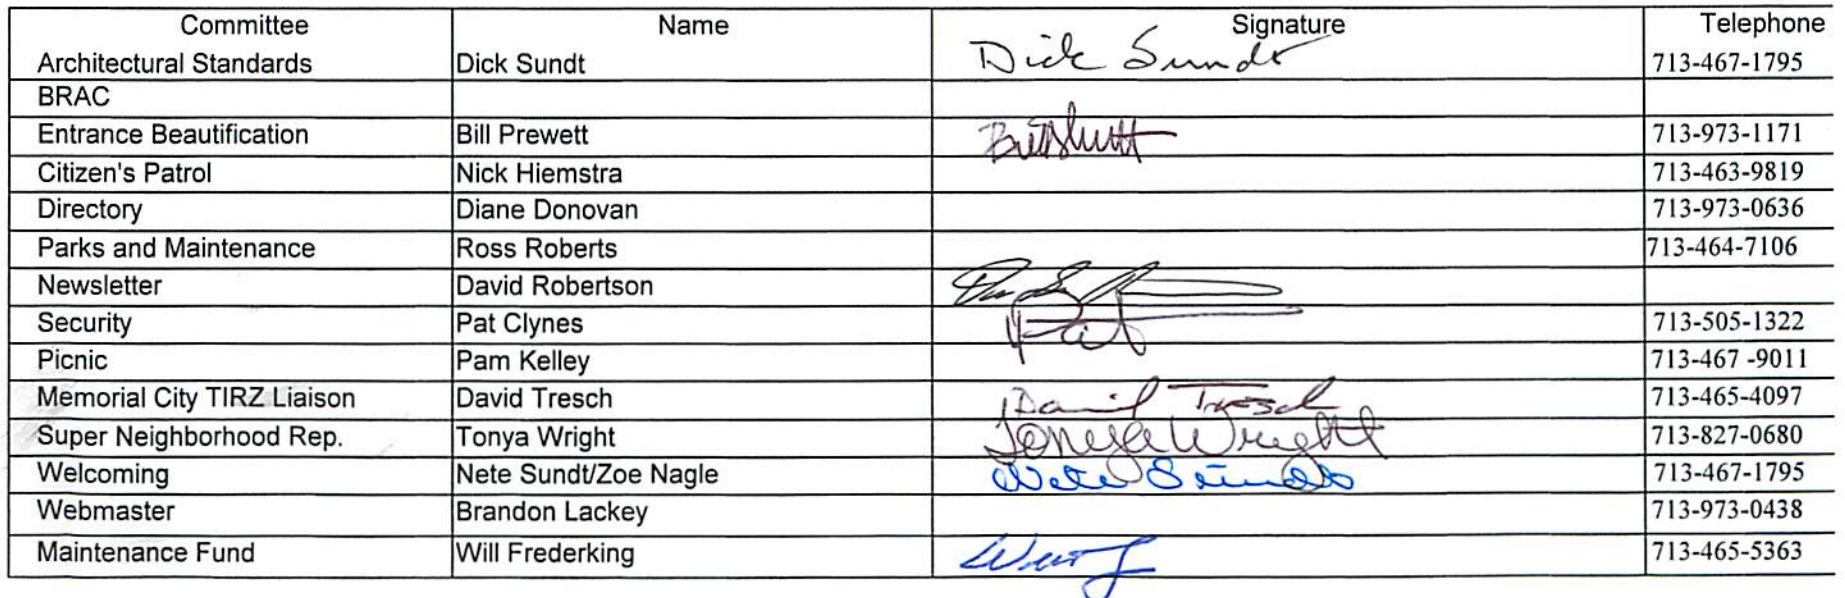 Committee Name Signature Telephone
Architectural Standards Dick Sundt Dick Sundt 713-467-1795
BRAC
Entrance Beautification Bill Prewett 713-973-1171
Citizen's Patrol Nick Hiemstra 713-463-9819
Directory Diane Donovan 713-973-0636
Parks and Maintenance Ross Roberts 713-464-7106
Newsletter David Robertson
Security Pat Clynes Pat 713-505-1322
Picnic Pam Kelley 713-467 -9011
Memorial City TIRZ Liaison David Tresch David Tresch 713-465-4097
Super Neighborhood Rep. Tonya Wright Tonya Wright 713-827-0680
Welcoming Nete Sundt/Zoe Nagle Nete Sundt 713-467-1795
Webmaster Brandon Lackey 713-973-0438
Maintenance Fund Will Frederking 713-465-5363